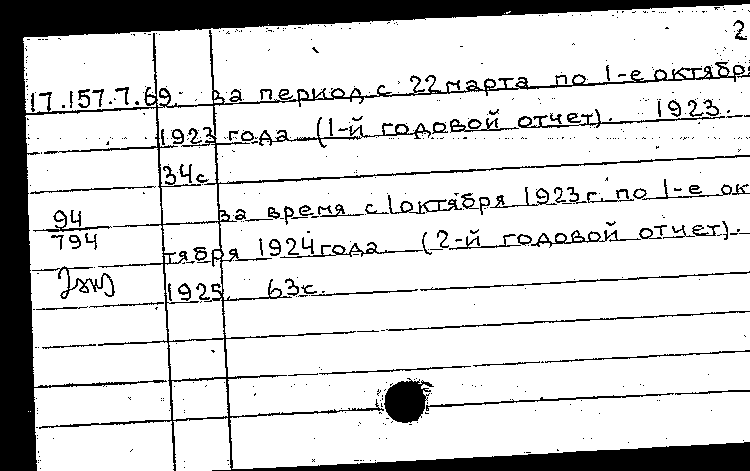 2
17.157.7.69. за период с 22 марта по 1-е октября
1923 года (1-й годовой отчет). 1923.
34с
94
794
за время с 1 октября 1923 г. по 1-е ок
тября 1924 года (2-й годовой отчет).
1925. 63с.